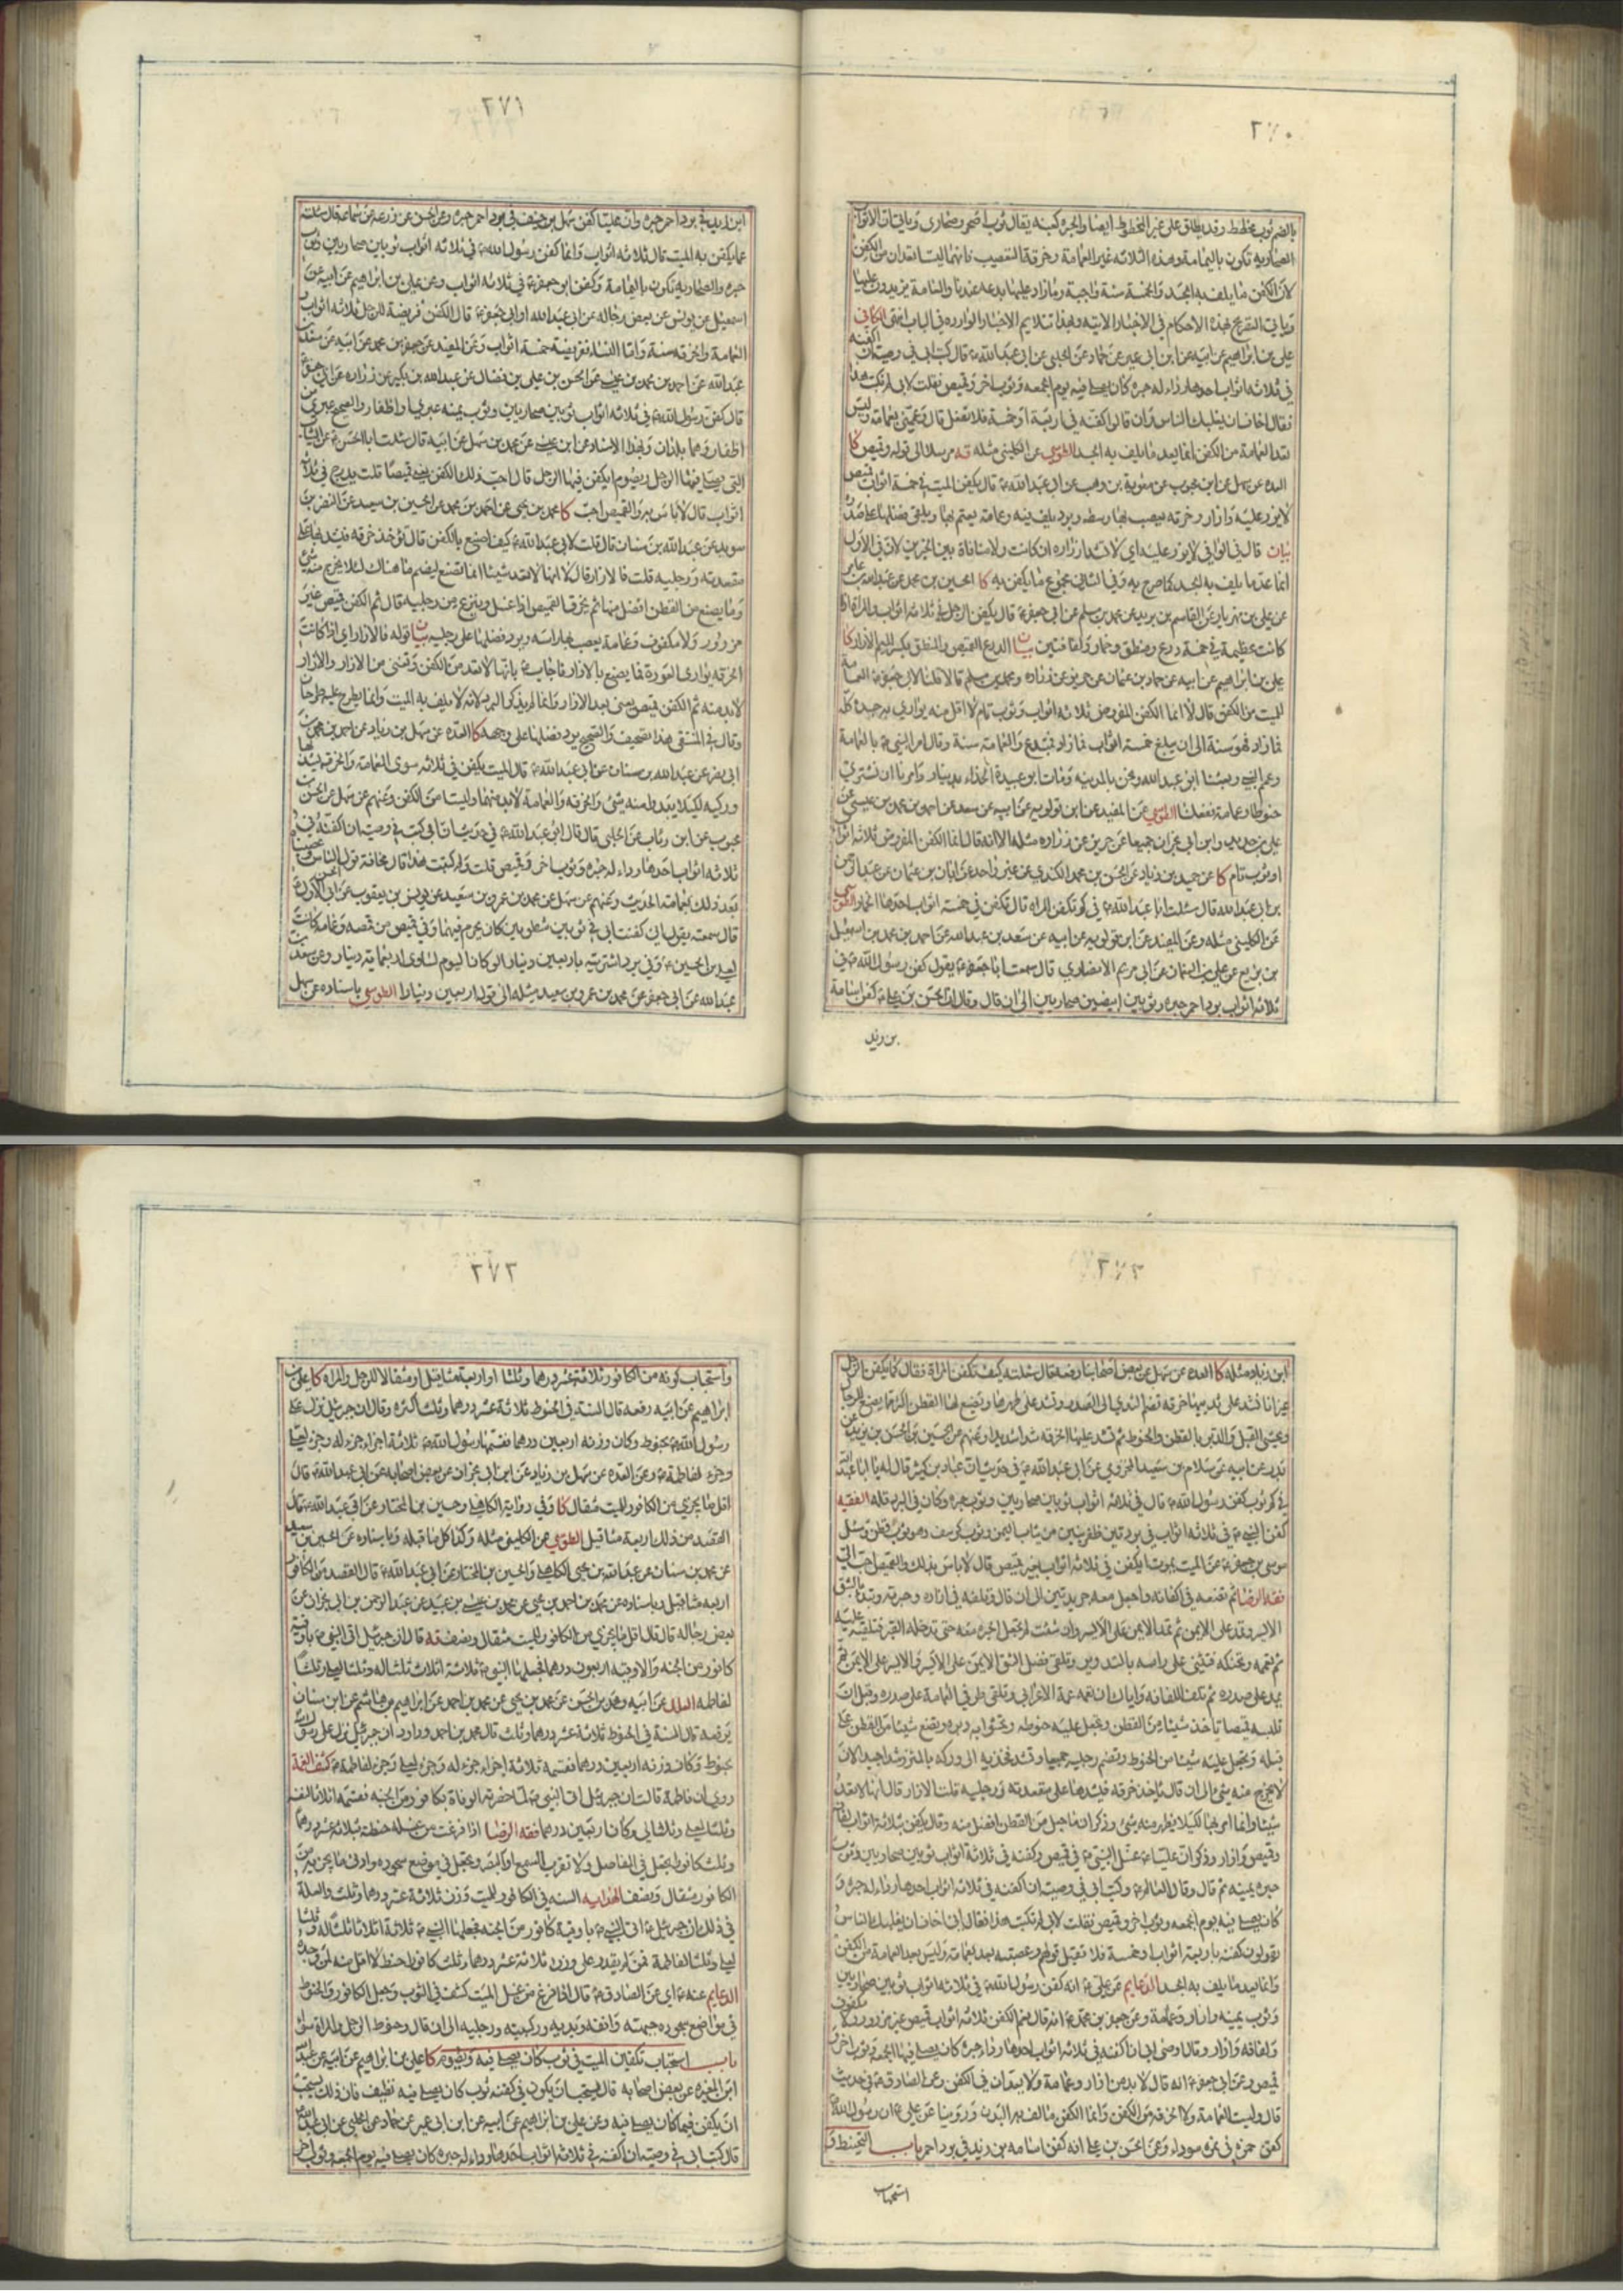 ٢٧٠
بالضم ثوب مخطط وقد يطلق على غير المخطوط ايضا والحبرة كعنبة يقال ثوب اصحر وصحاري وياتي ان الاثواب
الصحاريه تكون باليمامة وهذه الثلاثه غير العمامة وخرقة التعصيب فانهما ليستا تعدان من الكفن
لان الكفن ما يلف به الجسد والخمسة سنة واجبة وما زاد عليها بدعه عندنا والعامة يزيدون عليها
وياتي التصريح بهذه الاحكام في الاخبار الاتيه وبهذا تلايم الاخبار الوارده في الباب انتهى الكافي
علي بن ابراهيم عن ابيه عن ابن ابي عمير عن حماد عن الحلبي عن ابي عبد الله ع قال كتب ابي في وصيته ان اكفنه
في ثلاثه اثواب احدها رداء له حبره كان يصلي فيه يوم الجمعه وثوب اخر وقميص فقلت لابي لم تكتب هذا
فقال اخاف ان يغلبك الناس وان قالوا كفنه في اربعة او خمسة فلا تفعل قال وعممني بعمامة وليس
تعد العمامة من الكفن انما يعد ما يلف به الجسد الطوسي عن الكليني مثله قه مرسلا الى قوله وقميص كا
العده عن سهل عن ابن محبوب عن معوية بن وهب عن ابي عبد الله ع قال يكفن الميت في خمسة اثواب قميص
لا يزر عليه وازار وخرقه يعصب بها وسطه وبرد يلف فيه وعمامة يعتم بها ويلقى فضلها على صدره
بيان قال في الوافي لا يزر عليه اي لا تشد ازراره ان كانت ولا منافاة بين الخبرين لان في الاول
انما عد ما يلف به الجسد كما صرح به وفي الثاني مجموع ما يكفن به كا الحسين بن محمد عن عبد الله بن عامر
عن علي بن مهزيار عن القاسم بن بريد عن محمد بن مسلم عن ابي جعفر ع قال يكفن الرجل في ثلاثه اثواب والمراة اذا
كانت عظيمة في خمسة درع ومنطق وخمار ولفافتين بيان الدرع القميص والمنطق بكسر الميم الازار كا
علي بن ابراهيم عن ابيه عن حماد بن عثمان عن حريز عن زراره ومحمد بن مسلم قالا قلنا لابي جعفر ع العمامة
للميت من الكفن قال لا انما الكفن المفروض ثلاثه اثواب وثوب تام لا اقل منه يواري به جسده كله
فما زاد فهو سنة الى ان يبلغ خمسة اثواب فما زاد فمبتدع والعمامة سنة وقال امر النبي ص بالعمامة
وعم النبي وبعثنا ابو عبد الله ونحن بالمدينه ومات ابو عبيدة الحذاء بدينار وامرنا ان نشتري
حنوطا وعمامة ففعلنا الطوسي عن المفيد عن ابن قولويه عن ابيه عن سعد عن احمد بن محمد بن عيسى عن
علي بن حديد وابن ابي نجران جميعا عن حريز عن زراره مثله الا انه قال انما الكفن المفروض ثلاثه اثواب
او ثوب تام كا عن حميد بن زياد عن الحسن بن محمد الكندي عن غير واحد عن ابان بن عثمان عن عبد الرحمن
بن ابي عبد الله قال سئلت ابا عبد الله ع في كم تكفن المراه قال تكفن في خمسة اثواب احدها الخمار الطوسي
عن الكليني مثله وعن المفيد عن ابن قولويه عن ابيه عن سعد بن عبد الله عن احمد بن محمد بن اسمعيل
بن بزيع عن علي بن النعمان عن ابي مريم الانصاري قال سمعت ابا جعفر ع يقول كفن رسول الله ص في
ثلاثه اثواب برد احمر حبره وثوبين ابيضين صحاريين الى ان قال وقال ان الحسن بن علي ع كفن اسامة
بن زيد
٢٧١
ابن زيد في برد احمر حبره وان عليا كفن سهل بن حنيف في برد احمر حبره وعن الحسن عن زرعه عن سماعه قال سئلته
عما يكفن به الميت قال ثلاثه اثواب وانما كفن رسول الله ص في ثلاثه اثواب ثوبين صحاريين وثوب
حبره والصحاريه تكون باليمامة وكفن ابو جعفر ع في ثلاثه اثواب وعن علي بن ابراهيم عن ابيه عن
اسمعيل عن يونس عن بعض رجاله عن ابي عبد الله او ابي جعفر ع قال الكفن فريضة للرجل ثلاثه اثواب و
العمامة والخرقه سنة واما النساء ففريضة خمسة اثواب وعن المفيد عن جعفر بن محمد عن ابيه عن سعد بن
عبد الله عن احمد بن محمد بن عيسى عن الحسن بن علي بن فضال عن عبد الله بن بكير عن زراره عن ابي جعفر
قال كفن رسول الله ص في ثلاثه اثواب ثوبين صحاريين وثوب يمنه عبري واظفار والصحيح عبري من
اظفار وهما بلدان وبهذا الاسناد عن ابن عيسى عن محمد بن سهل عن ابيه قال سئلت ابا الحسن ع عن الثياب
التي يصلي فيها الرجل ويصوم ايكفن فيها الرجل قال احب ذلك الكفن يعني قميصا قلت يدرج في ثلاثة
اثواب قال لا باس به والقميص احب كا محمد بن يحيى عن احمد بن محمد عن الحسين بن سعيد عن النضر بن
سويد عن عبد الله بن سنان قال قلت لابي عبد الله ع كيف اصنع بالكفن قال تؤخذ خرقه فيشد بها على
مقعدته ورجليه قلت فالازار قال لا انها لا تعد شيئا انما تصنع ليضم ما هناك لئلا يخرج منه شئ
وما يصنع من القطن افضل منها ثم يخرق القميص اذا غسل وينزع من رجليه قال ثم الكفن قميص غير
مزرور ولا مكفوف وعمامة يعصب بها راسه ويرد فضلها على رجليه بيان قوله فالازار اي اذا كانت
الخرقه يواري العورة فما يصنع بالازار فاجاب ع بانها لا تعد من الكفن وتغني من الازار والازار
لا بد منه ثم الكفن قميص يعني بعد الازار وانما لم يذكر البرد لانه لا يلف به الميت وانما يطرح عليه طرحا
وقال في المنتقى هذا تصحيف والصحيح يرد فضلها على وجهه كا العده عن سهل بن زياد عن احمد بن محمد بن
ابي نصر عن عبد الله بن سنان عن ابي عبد الله ع قال الميت يكفن في ثلاثه سوى العمامة والخرقه يشد بها
وركيه لكيلا يبدو منه شئ والخرقه والعمامة لا بد منهما وليستا من الكفن وعنهم عن سهل عن الحسن بن
محبوب عن ابن رئاب عن الحلبي قال قال ابو عبد الله ع في حديث ان ابي كتب في وصيته ان اكفنه في
ثلاثه اثواب احدها رداء له حبره وثوب اخر وقميص قلت ولم كتبت هذا قال مخافة قول الناس وعصبناه
بعد ذلك بعمامة الحديث وعنهم عن سهل عن محمد بن عمرو بن سعيد عن يونس بن يعقوب عن ابي الحسن الاول ع
قال سمعته يقول اني كفنت ابي في ثوبين شطويين كان يحرم فيهما وفي قميص من قمصه وعمامة كانت
لعلي بن الحسين ع وفي برد اشتريته باربعين دينارا لو كان اليوم لساوى اربعمايه دينار وعن سعد بن
عبد الله عن ابي جعفر عن محمد بن عمرو بن سعيد مثله الى قوله اربعين دينارا الطوسي باسناده عن سهل
٢٧٢
ابن زياد مثله كا العده عن سهل عن بعض اصحابنا رفعه قال سئلته كيف تكفن المراة فقال كما يكفن الرجل
غير انا نشد على ثدييها خرقه تضم الثدي الى الصدر وتشد على ظهرها ويصنع لها القطن اكثر مما يصنع للرجال
ويحشى القبل والدبر بالقطن والحنوط ثم تشد عليها الخرقه شدا شديدا وعنهم عن الحسين بن الحسن بن يزيد عن
بدر عن ابيه عن سلام بن سعيد المخزومي عن ابي عبد الله ع في حديث ان عباد بن كثير قال له يا ابا عبد الله
في كم ثوب كفن رسول الله ص قال في ثلاثه اثواب ثوبين صحاريين وثوب حبره وكان في البرد قله الفقيه
كفن النبي ص في ثلاثه اثواب في بردتين ظفريتين من ثياب اليمن وثوب كرسف وهو ثوب قطن وسئل
موسى بن جعفر ع عن الميت يموت ايكفن في ثلاثه اثواب بغير قميص قال لا باس بذلك والقميص احب الي
فقه الرضا ثم تضعه في اكفانه واجعل معه جريدتين الى ان قال وتلفه في ازاره وحبرته وتبدا بالشق
الايسر وتمد على الايمن ثم تمد الايمن على الايسر وان شئت لم تجعل الحبره معه حتى تدخله القبر فتلقيه عليه
ثم تعممه وتحنكه فتثني على راسه بالتدوير وتلقي فضل الشق الايمن على الايسر والايسر على الايمن ثم
يمد على صدره ثم تلف اللفافه واياك ان تعمه عمة الاعرابي وتلقي طرفي العمامة على صدره وقبل ان
تلبسه قميصا تاخذ شيئا من القطن وتجعل عليه حنوطه وتحشو به دبره وتضع شيئا من القطن على
قبله وتجعل عليه شيئا من الحنوط وتضم رجليه جميعا وتشد فخذيه الى وركه بالمئزر شدا جيدا لان
لا يخرج منه شئ الى ان قال تاخذ خرقه فيشدها على مقعدته ورجليه قلت الازار قال انها لا تعد
شيئا وانما امر بها لكيلا يظهر منه شئ وذكر ان ما جعل من القطن افضل منه وقال يكفن بثلاثة اثواب لفافه
وقميص وازار وذكر ان عليا ع غسل النبي ص في قميص وكفنه في ثلاثة اثواب ثوبين صحاريين وثوب
حبره يمنيه ثم قال وقال العالم ع وكتب ابي في وصيته ان اكفنه في ثلاثه اثواب احدها رداء له حبره و
كان يصلي فيه يوم الجمعه وثوب اخر وقميص فقلت لابي لم تكتب هذا فقال اني اخاف ان يغلبك الناس
يقولون كفنه باربعة اثواب او خمسة فلا تقبل قولهم وعصبته بعد بعمامة وليس تعد العمامة من الكفن
وانما يعد ما يلف به الجسد الدعايم عن علي ع انه كفن رسول الله ص في ثلاثه اثواب ثوبين صحاريين
وثوب يمنيه وازار وعمامة وعن جعفر بن محمد ع انه قال نعم الكفن ثلاثه اثواب قميص غير مزرور ولا مكفوف
ولفافه وازار وقال اوصى ابي ان اكفنه في ثلاثه اثواب احدها رداء حبره كان يصلي فيها الجمعه وثوب اخر و
قميص وعن ابي جعفر ع انه قال لا بد من ازار وعمامة ولا يعدان في الكفن وعن الصادق ع في حديث
قال وليست العمامة ولا الخرقه من الكفن وانما الكفن ما لف به البدن وروينا عن علي ع ان رسول الله ص
كفن حمزه في نمره سوداء وعن الحسن بن علي انه كفن اسامه بن زيد في برد احمر باب التحنيط و
استحباب
٢٧٣
واستحباب كونه من الكافور ثلاثة عشر درهما وثلثا او اربعة مثاقيل او مثقالا للرجل والمراه كا علي بن
ابراهيم عن ابيه رفعه قال السنة في الحنوط ثلاثة عشر درهما وثلث اكثره وقال ان جبرئيل نزل على
رسول الله ص بحنوط وكان وزنه اربعين درهما فقسمها رسول الله ص ثلاثة اجزاء جزء له وجزء لعلي
وجزء لفاطمة ع وعن العده عن سهل بن زياد عن ابن ابي نجران عن بعض اصحابه عن ابي عبد الله ع قال
اقل ما يجزي من الكافور للميت مثقال كا وفي رواية الكاهلي وحسين بن المختار عن ابي عبد الله ع قال
القصد من ذلك اربعة مثاقيل الطوسي عن الكليني مثله وكذا كل ما قبله وباسناده عن الحسين بن سعيد
عن محمد بن سنان عن عبد الله بن يحيى الكاهلي والحسين بن المختار عن ابي عبد الله ع قال القصد من الكافور
اربعه مثاقيل وباسناده عن محمد بن احمد بن يحيى عن محمد بن عيسى بن عبيد عن عبد الرحمن بن ابي نجران عن
بعض رجاله قال قال اقل ما يجزي من الكافور للميت مثقال ونصف قه قال ان جبرئيل اتى النبي ص باوقية
كافور من الجنه والاوقيه اربعون درهما فجعلها النبي ص ثلاثة اثلاث ثلثا له وثلثا لعلي وثلثا
لفاطمه العلل عن ابيه ومحمد بن الحسن عن محمد بن يحيى عن محمد بن احمد عن ابراهيم بن هاشم عن ابن سنان
يرفعه قال السنة في الحنوط ثلاثة عشر درهما وثلث قال محمد بن احمد ورووا ان جبرئيل نزل على رسول الله
بحنوط وكان وزنه اربعين درهما فقسمه ثلاثة اجزاء جزء له وجزء لعلي وجزء لفاطمة ع كشف الغمة
روي ان فاطمة قالت ان جبرئيل اتى النبي ص لما حضرته الوفاة بكافور من الجنه فقسمه اثلاثا لنفسه
وثلثا لعلي وثلثا لي وكان اربعين درهما فقه الرضا اذا فرغت من غسله حنطه بثلاثة عشر درهما
وثلث كافورا يجعل في المفاصل ولا تقرب السمع او البصر ويجعل في موضع سجوده وادنى ما يجزيه من
الكافور مثقال ونصف الهدايه السنه في الكافور للميت وزن ثلاثة عشر درهما وثلث والعلة
في ذلك ان جبرئيل ع اتى النبي ص باوقية كافور من الجنه فجعلها النبي ص ثلاثة اثلاثا ثلثا له وثلثا
لعلي وثلثا لفاطمة فمن لم يقدر على وزن ثلاثة عشر درهما وثلث كافورا حنط لا اقل منه لمن وجده
الدعايم عنه ع اي عن الصادق ع قال اذا فرغ من غسل الميت كشف في الثوب وجعل الكافور والحنوط
في مواضع سجوده جبهته وانفه ويديه وركبتيه ورجليه الى ان قال وحنوط الرجل والمراة سواء
باب استحباب تكفين الميت في ثوب كان يصلي فيه ويصوم كا علي بن ابراهيم عن ابيه عن عبد الله
ابن المغيره عن بعض اصحابه قال يستحب ان يكون في كفنه ثوب كان يصلي فيه نظيف فان ذلك يستحب
ان يكفن فيما كان يصلي فيه وعن علي بن ابراهيم عن ابيه عن ابن ابي عمير عن حماد عن الحلبي عن ابي عبد الله
قال كتب ابي في وصيته ان اكفنه في ثلاثه اثواب احدها رداء له حبره كان يصلي فيه يوم الجمعه وثوب اخر